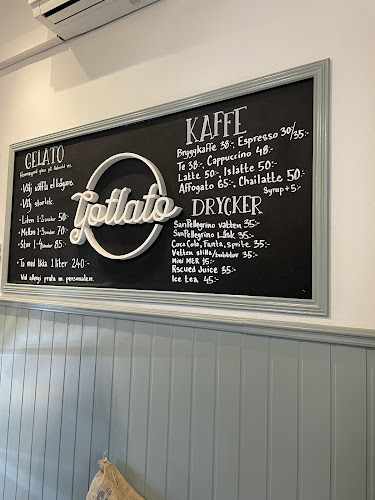 GELATO
Hemmagjord glass på Gotland
• Välj våffla el. bägare.
• Välj storlek.
• Liten 1-2 smaker 50:-
• Mellan 1-3 smaker 70:-
• Stor 1-4 smaker 85:-
• Ta med låda 1 liter 240:-
Vid allergi prata m. personalen.
Gotlato
KAFFE
Bryggkaffe 38:-, Espresso 30/35:-
Te 38:-, Cappuccino 48:-
Latte 50:-, Islatte 50:-
Affogato 65:-, Chailatte 50:-
Syrup +5:-
DRYCKER
SanPellegrino vatten 35:-
SanPellegrino Läsk 35:-
Coca Cola, Fanta, sprite 35:-
Vatten stilla/bubblor 35:-
Mini MER 15:-
Rscued Juice 35:-
Ice tea 45:-